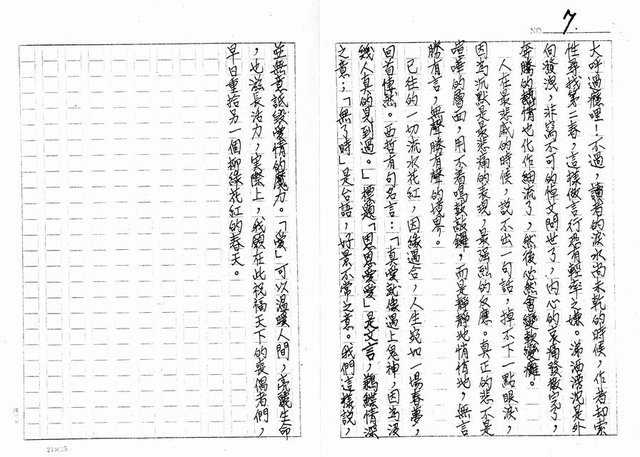 NO. 7
大呼過癮哩!不過,讀者的淚水尚未乾的時候,作者却索
性尋找第二春,這樣做言行恐有輕率之嫌。涕洒滂沱是外
向發洩,非寫不可的悼文問世了,內心的哀痛發散完了,
奔騰的感情也化作細流了,然後必然會變軟變癱。
人在最悲戚的時候,說不出一句話,掉不下一點眼淚,
因為沉默是最悲痛的表現,最強烈的反應。真正的悲不是
喧嘩的層面,用不著鳴鼓敲鑼,而是靜靜地悄悄地,無言
勝有言,無聲勝有聲的境界。
已往的一切流水花紅,因緣遇合,人生宛如一場春夢,
回首悽然。西哲有句名言:「真愛就像遇上鬼神,因為沒
幾人真的見到過。」標題「恩恩愛愛」是文言,鶼鰈情深
之意;「無了時」是台語,好景不常之意。我們這樣說,
並無意詆毀愛情的魔力。「愛」可以溫暖人間,亮麗生命
,也滋長活力,實際上,我願在此祝福天下的喪偶者們,
早日重拾另一個柳綠花紅的春天。